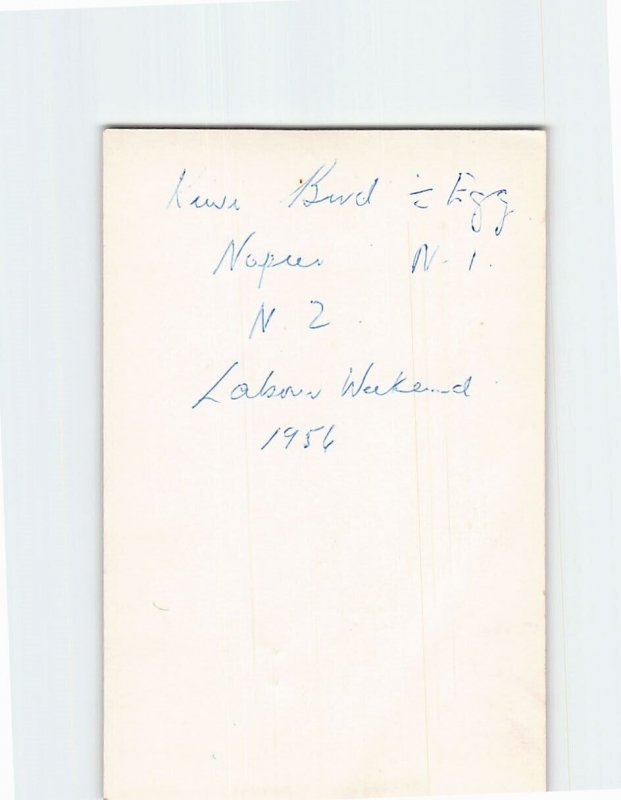 Kiwi Bird & Egg
Napier N. I.
N. Z.
Labour Weekend
1956